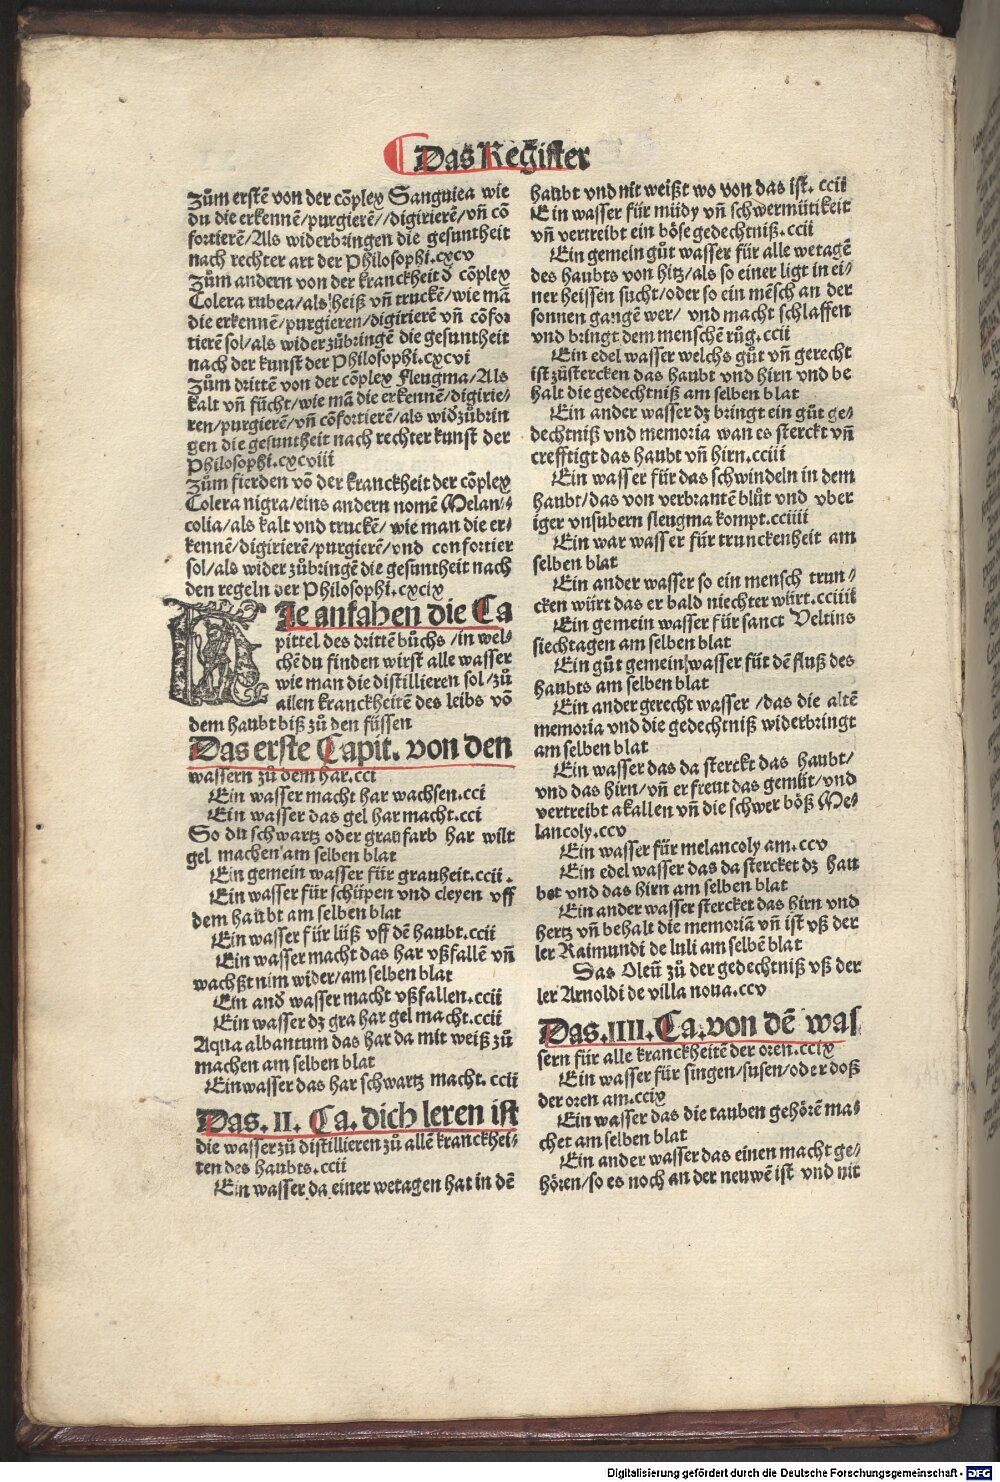 Das Register
Zům erstē von der cōplex Sanguiea wie
du die erkennē/purgierē//digirierē/vñ cō
fortierē/Als widerbringen die gesuntheit
nach rechter art der Philosophi.cxcv
Zům andern von der kranckheit đ cōplex
Colera rubea/als heiß vñ truckē/wie mā
die erkennē/purgieren/digirierē vñ cōfor
tierē sol/als wider zůbringē die gesuntheit
nach der kunst der Philosophi.cxcvi
Zům drittē von der cōplex fleugma/Als
kalt vñ fücht/wie mā die erkennē/digirie/
ren/purgierē/vñ cōfortierē/als wiđzůbrin
gen die gesuntheit nach rechter kunst der
Philosophi.cxcviii
Zům fierden vō der kranckheit der cōplex
Colera nigra/eins andern nomē Melan/
colia/als kalt vnd truckē/wie man die er/
kennē/digirierē/purgierē/vnd confortier
sol/als wider zůbringē die gesuntheit nach
den regeln der Philosophi.cxcix
Ie anfahen die Ca
pittel des drittē bůchs/in wel/
chē du finden wirst alle wasser
wie man die distillieren sol/zů
allen kranckheitē des leibs vō
dem haubt biß zů den füssen
Das erste Capit. von den
wassern zů dem har.cci
Ein wasser macht har wachsen.cci
Ein wasser das gel har macht.cci
So du schwartz oder grau farb har wilt
gel machen am selben blat
Ein gemein wasser für grauheit.ccii.
Ein wasser für schüpen vnd cleyen vff
dem haubt am selben blat
Ein wasser für lüß vff dē haubt.ccii
Ein wasser macht das har vßfallē vñ
wachßt nim wider/am selben blat
Ein anđ wasser macht vßfallen.ccii
Ein wasser dz gra har gel macht.ccii
Aqua albantum das har da mit weiß zů
machen am selben blat
Ein wasser das har schwartz macht.ccii
Das.II. Ca. dich leren ist
die wasser zů distillieren zů allē kranckhei/
ten des haubts.ccii
Ein wasser da einer wetagen hat in dē
haubt vnd nit weißt wo von das ist. ccii
Ein wasser für müdy vñ schwermütikeit
vñ vertreibt ein böse gedechtniß.ccii
Ein gemein gůt wasser für alle wetagē
des haubts von hitz/als so einer ligt in ei/
ner heissen sucht/oder so ein mēsch an der
sonnen gangē wer/ vnd macht schlaffen
vnd bringt dem menschē růg.ccii
Ein edel wasser welchs gůt vñ gerecht
ist zůstercken das haubt vnd hirn vnd be
halt die gedechtniß am selben blat
Ein ander wasser dz bringt ein gůt ge/
dechtniß vnd memoria wan es sterckt vñ
crefftigt das haubt vñ hirn.cciii
Ein wasser für das schwindeln in dem
haubt/das von verbrantē blůt vnd vber
iger vnsubern fleugma kompt.cciiii
Ein war wasser für trunckenheit am
selben blat
Ein ander wasser so ein mensch trun/
cken würt das er bald niechter würt.cciiii
Ein gemein wasser für sanct Veltins
siechtagen am selben blat
Ein gůt gemein wasser für dē fluß des
haubts am selben blat
Ein ander gerecht wasser /das die altē
memoria vnd die gedechtniß widerbringt
am selben blat
Ein wasser das da sterckt das haubt/
vnd das hirn/vñ erfreut das gemüt/vnd
vertreibt akallen vñ die schwer böß Me/
lancoly.ccv
Ein wasser für melancoly am.ccv
Ein edel wasser das da stercket dz hau
bet vnd das hirn am selben blat
Ein ander wasser stercket das hirn vnd
hertz vñ behalt die memoriā vñ ist vß der
ler Raimundi de luli am selbē blat
Sas Oleū zů der gedechtniß vß der
ler Arnoldi de villa noua.ccv
Das.IIII.Ca.von dē was
sern für alle kranckheitē der oren.ccix
Ein wasser für singen/susen/oder doß
der oren am.ccix
Ein wasser das die tauben gehörē ma/
chet am selben blat
Ein ander wasser das einen macht ge/
hören/so es noch an der neuwē ist vnd nit
Digitalisierung gefördert durch die Deutsche Forschungsgemeinschaft - DFG